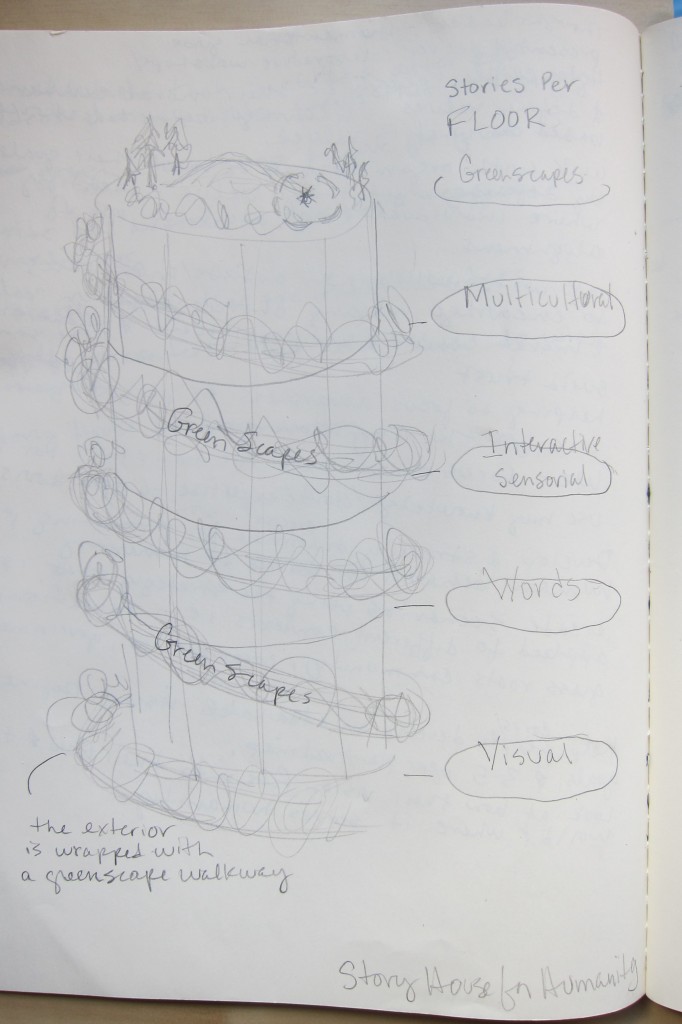 Stories Per
FLOOR
Greenscapes
Multicultural
Green Scapes
Interactive
Sensorial
Words
Green Scapes
Visual
the exterior
is wrapped with
a greenscape walkway
Story House for Humanity